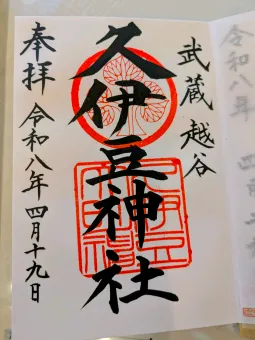 武蔵越谷
久伊豆神社
奉拝 令和八年四月十九日
令和八年